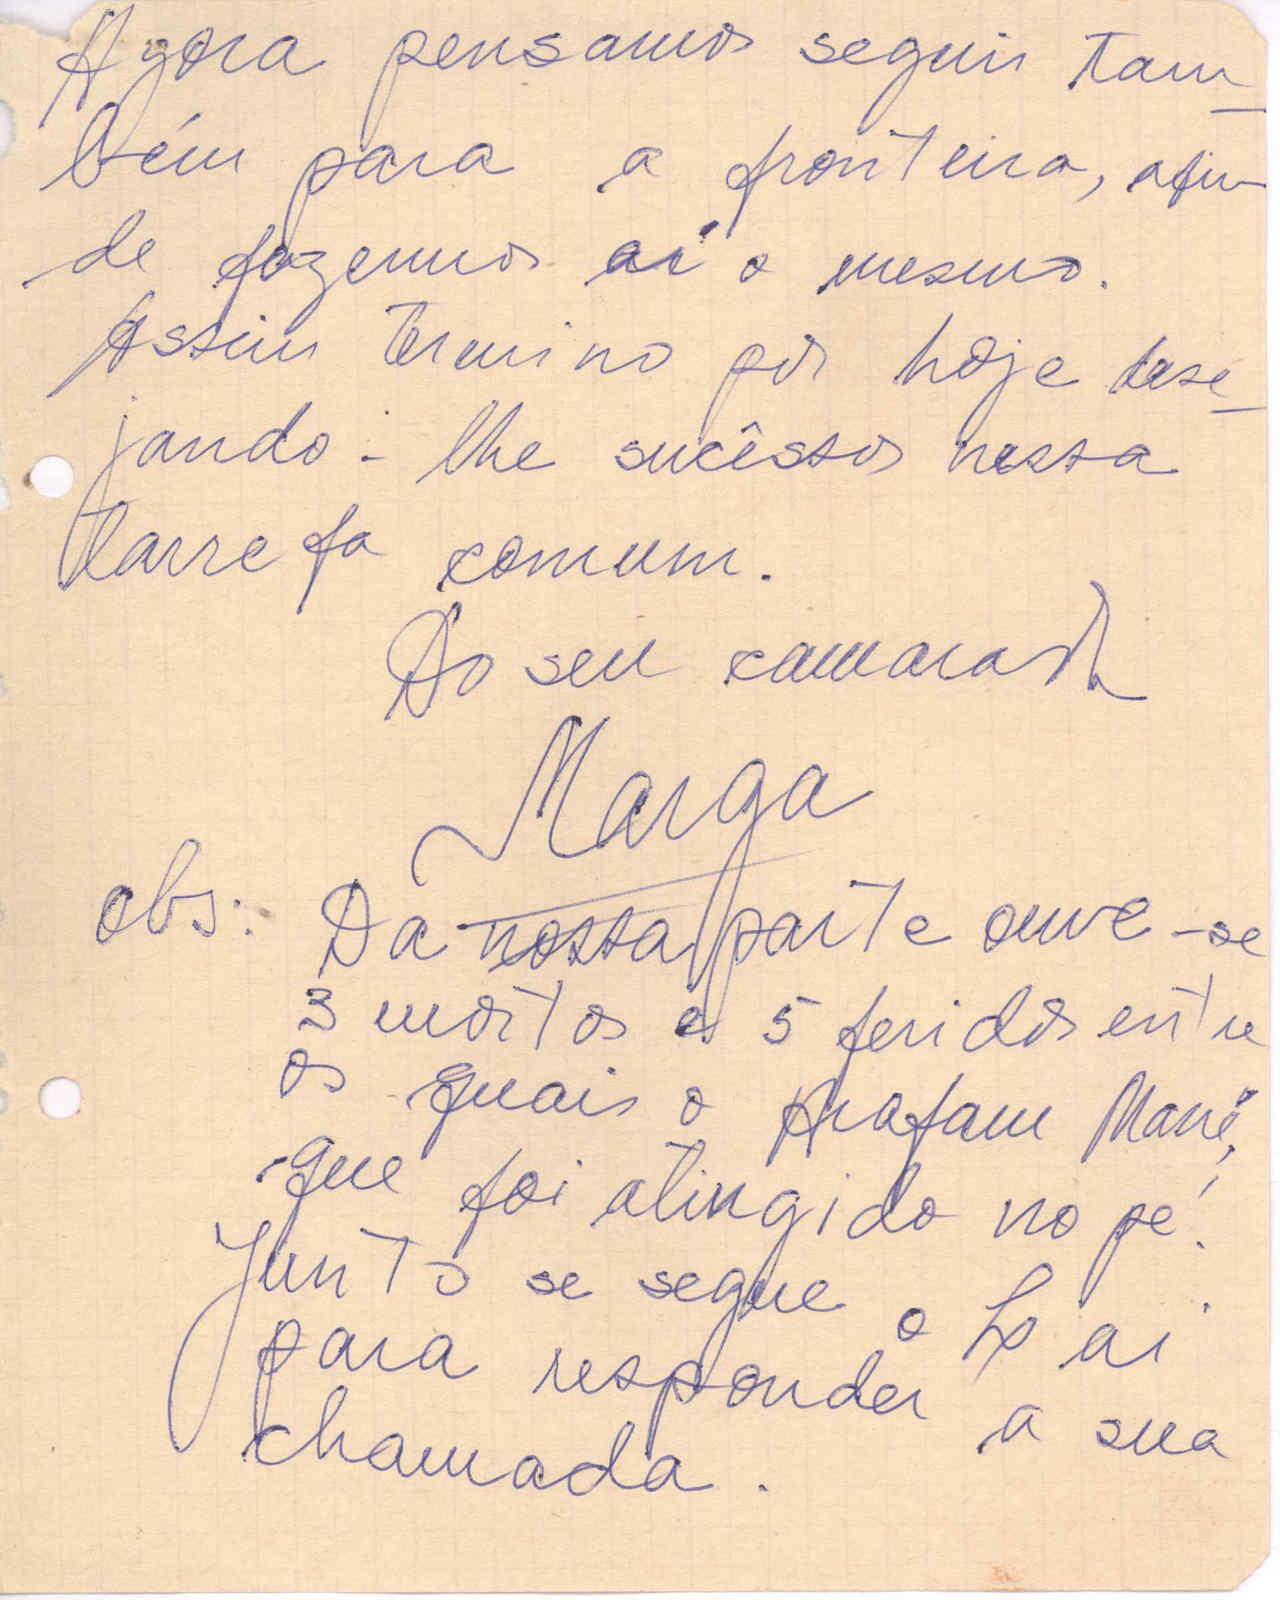 Agora pensamos seguir tam-
bém para a fronteira, afim
de fazermos aí o mesmo.
Assim termino por hoje dese-
jando-lhe sucêssos nessa
tarrefa comum.
Do seu camarada
Marga
obs: Da nossa parte ouve-se
3 mortos e 5 feridos entre
os quais o Anafam Mané,
que foi atingido no pé.
Junto se segue o Lp aí
para responder a sua
chamada.